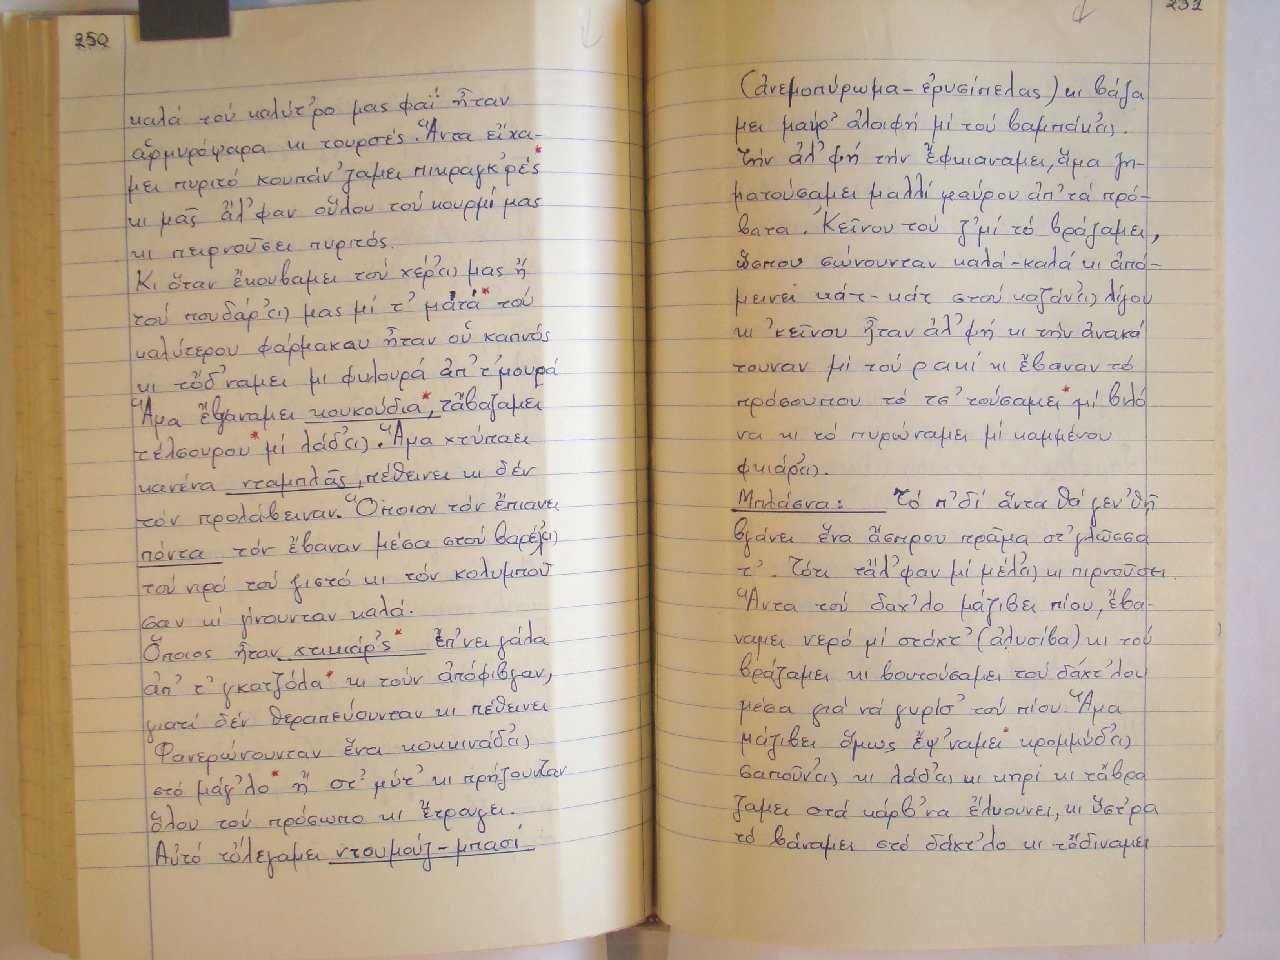 250
καλά τού καλύτ'ρο μας φαΐ ἦταν
ἁρμυρόψαρα κι τουρσές. Ἄντα εἴχα-
μει πυριτό κουπάν'ζαμει πικραγκ'ρές*
κι μᾶς ἄλ'φαν οὕλου τού κουρμί μας
κι πιρνοῦσει πυριτός.
Κι ὅταν ἔκουβαμει τού χέρ'ι) μας ἤ
τού πουδάρ'ι) μας μί τ' ματά* τού
καλύτερου φάρμακου ἦταν οὗ καπνός
κι τὄδ'ναμει μι φιλουρά ἀπ' τ' μουρά
Ἅμα ἔβγαναμει κουκούδια*, τἄβαζαμει
τέλσουρου* μί λάδ'ι). Ἅμα χτύπαει
κανένα νταμπλᾶς, πέθινει κι δέν
τόν προλάβειναν. Ὅποιον τόν ἔπιανει
πόντα τόν ἔβαναν μέσα στού βαρέλ'ι)
τού νιρό τού ζιστό κι τόν κολυμποῦ
σαν κι γίνουνταν καλά.
Ὅποιος ἦταν χτικιάρ'ς* ἔπ'νει γάλα
ἀπ' τ' γκατζόλα* κι τούν ἀπόφιβγαν,
γιατί δέν θεραπεύουνταν κι πέθεινει
Φανερώνουνταν ἕνα κοκκινάδ'ι)
στό μάγ'λο* ἤ στ' μύτ' κι πρήζουνταν
ὅλου τού πρόσωπο κι ἔτραγει.
Αὐτό τὄλεγαμει ντουμούζ-μπασί
231
(ἀνεμοπύρωμα-ἐρυσίπελας) κι βάζα
μει μαύρ' ἀλοιφή μί τού βαμπάκ'ι).
Τήν ἀλ'φή τήν ἔφκιαναμει, ἅμα ζη-
ματούσαμει μαλλί μαύρου ἀπ' τά πρό-
βατα. Κεῖνου τού ζ'μί τό βράζαμει,
ὥσπου σώνουνταν καλά-καλά κι ἀπό-
μεινει κάτ-κάτ στού καζάν'ι) λίγου
κι 'κεῖνου ἦταν ἀλ'φή κι τήν ἀνακά
τουναν μί τού ρακί κι ἔβαναν τό
πρόσουπου τό τσ'τούσαμει* μί βιλό
να κι τό πυρώναμει μί καμμένου
φκιάρ'ι).
Μπλάσνα: Τό π'δί ἄντα θά γεν'θῆ
βγάνει ἕνα ἄσπρου πρᾶμα στ' γλῶσσα
τ'. Τότι τἀλ'φαν μί μέλ'ι) κι πιρνοῦσει.
Ἄντα τού δαχ'λο μάζιβει πίου, ἔβα-
ναμει νερό μί στάχτ' (ἀλυσίβα) κι τού
βράζαμει κι βουτούσαμει τού δάχτ'λου
μέσα γιά νά γυρίσ' τού πίου. Ἅμα
μάζιβει ὅμως ἔψ'ναμει* κρομμύδ'ι)
σαπούν'ι) κι λάδ'ι κι κηρί κι τἄβρα
ζαμει στά κάρβ'να ἔλυουνει, κι ὕστ'ρα
τό βάναμει στό δάχτ'λο κι τὄδιναμει